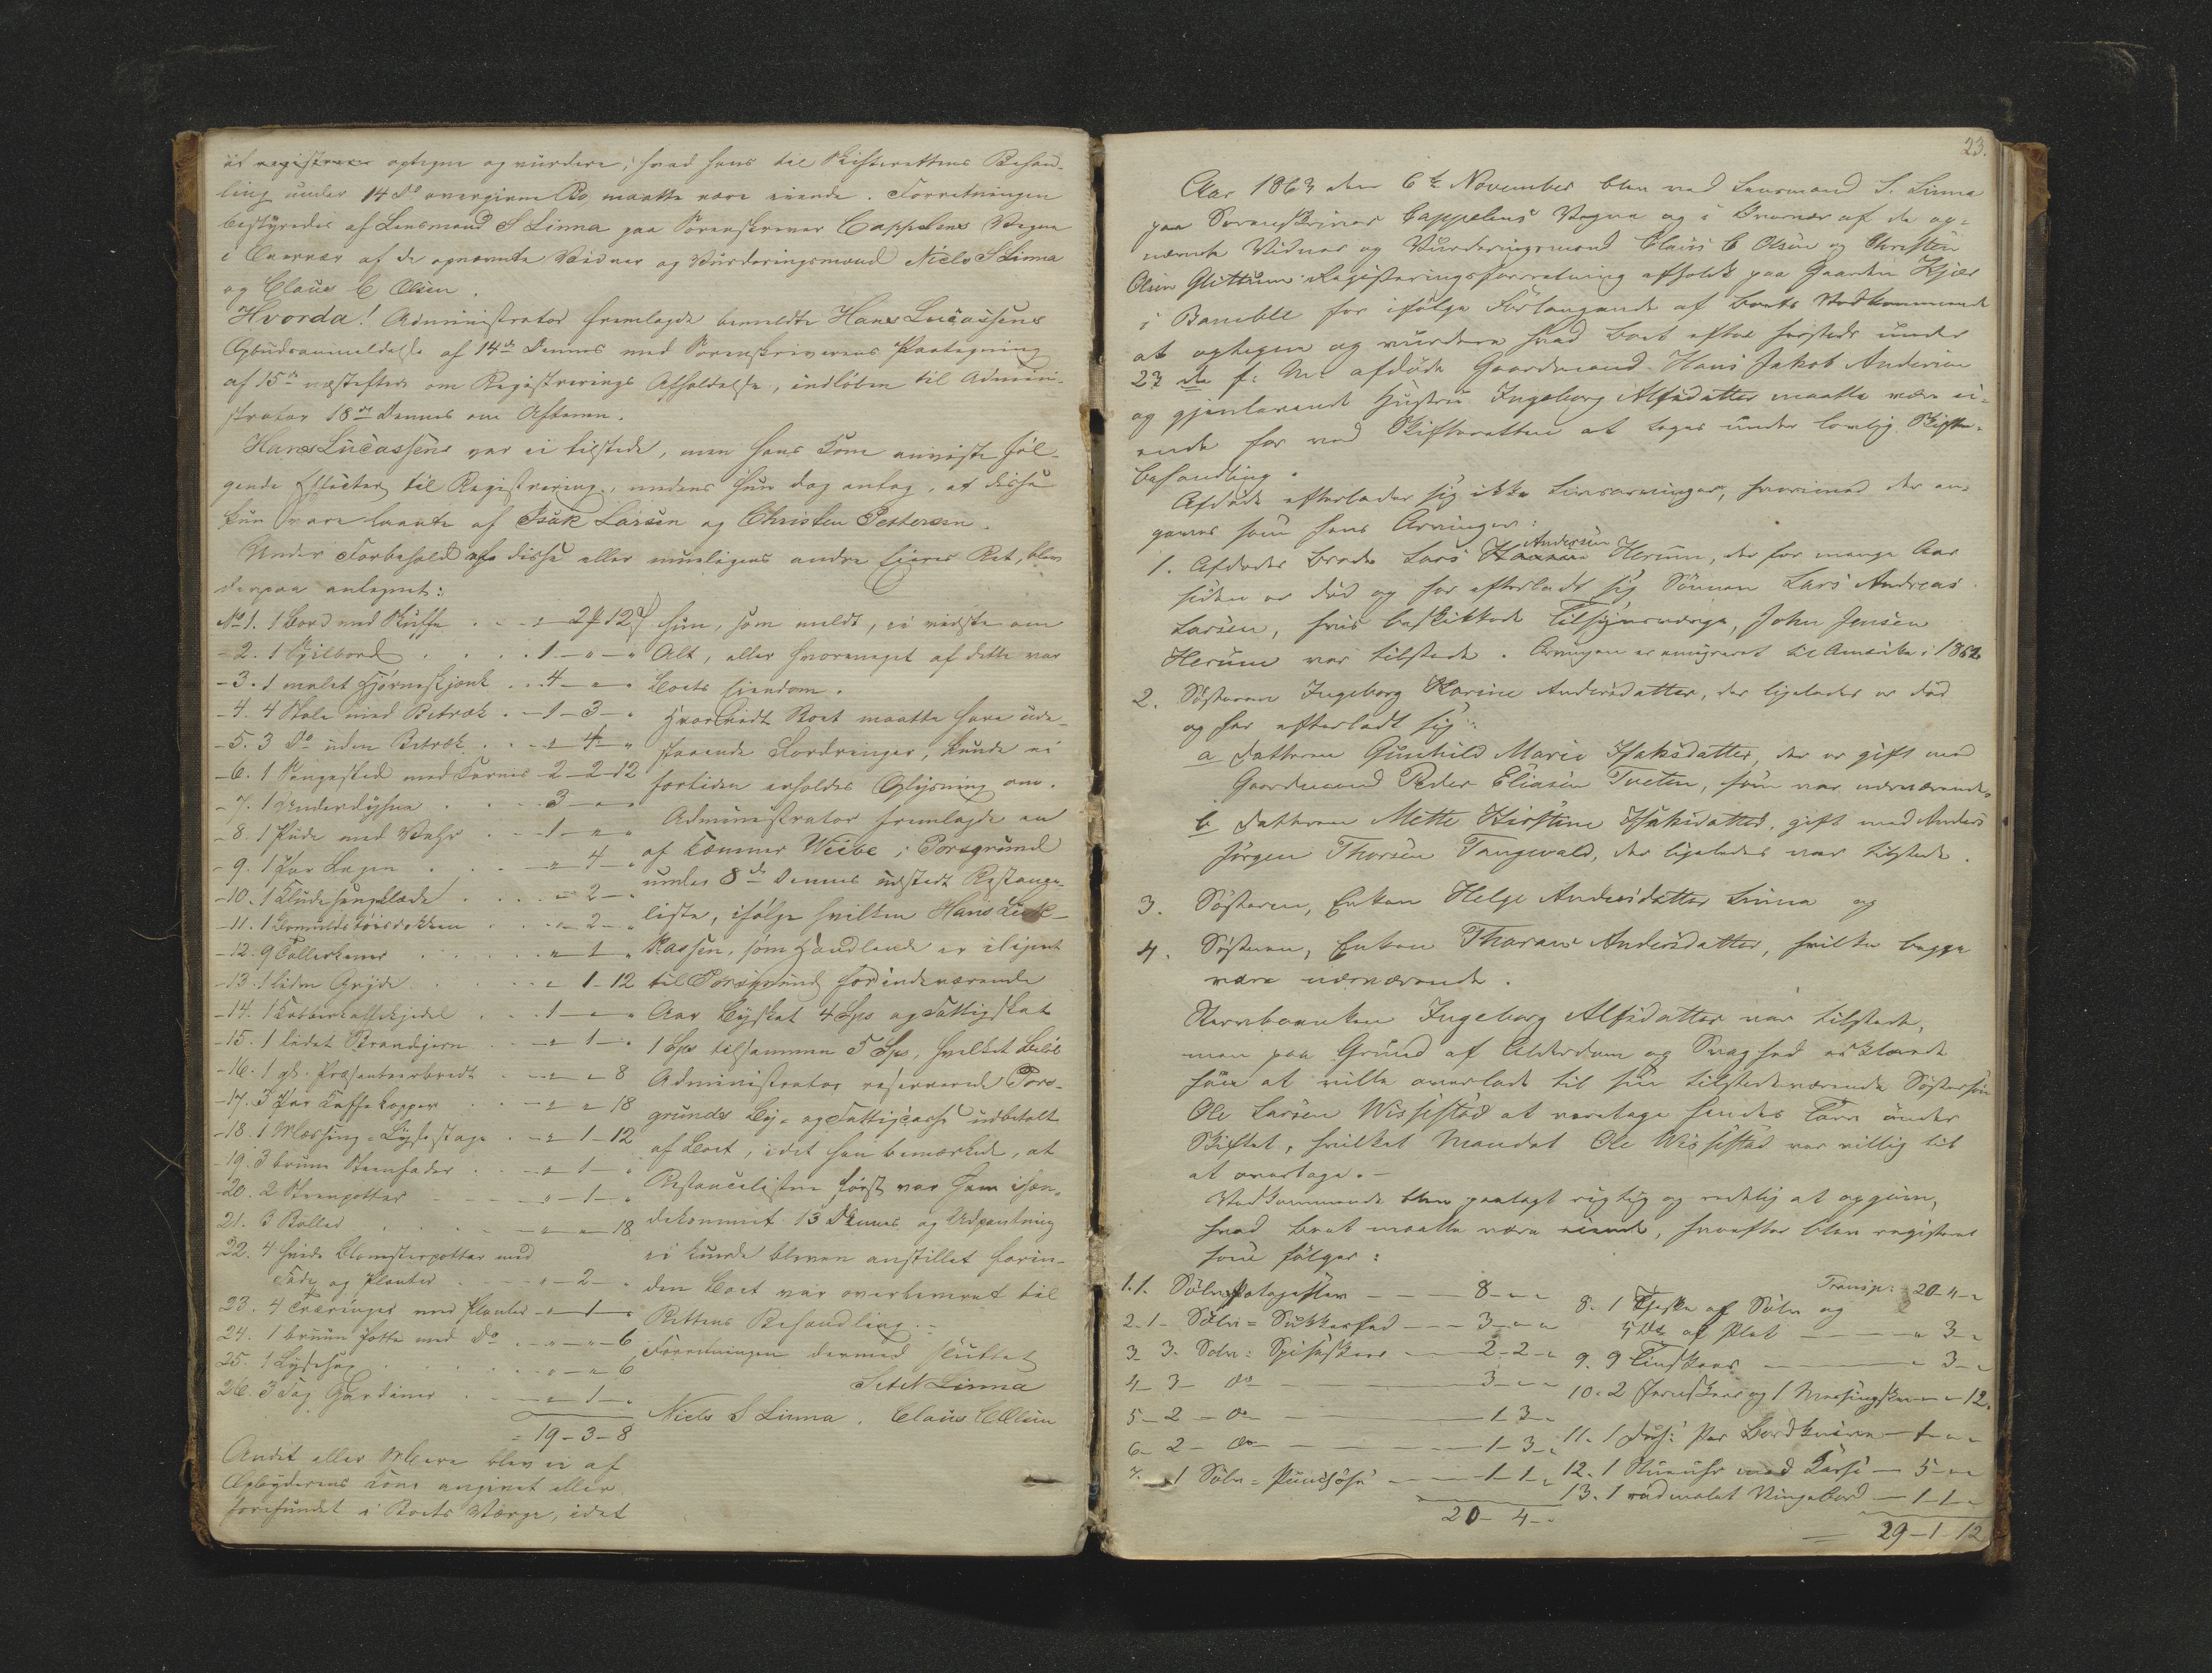 at registrere optegne og vurdere, hvad hans til Skifterettens Behand-
ling under 14 Ds overgivne Bo maatte være eiende. Forretningen
bestyredes af Lensmand S Linna paa Sorenskriver Cappelens Vegne
i Overvær af de opnævnte Vidner og Vurderingsmænd Niels S Linna
og Claus C Olsen.
Hvorda! Administrator fremlagde bemeldte Hans Lucassens
Opbudsanmeldelse af 14de Dennes med Sorenskriverens Paategning
af 15de næstefter om Registrerings Afholdelse, indløben til Admini-
strator 18de Dennes om Aftenen.
Hans Lucassens var ei tilstede, men hans Kone anviste føl-
gende Effecter til Registrering, medens hun dog antog, at disse
kun vare laante af Isak Larsen og Christen Pettersen.
Under Forbehold af disse eller muligens andre Eieres Ret, blev
derpaa antegnet:
No 1. 1 Bord med Skuffe - " 2 ₰ 12 ß
- 2. 1 Spilbord 1 - " - "
- 3. 1 malet Hjørneskjænk 4 - " - "
- 4. 4 Stole med Betræk - 1 - 3 - "
- 5. 3 Do uden Betræk - " - 4 - "
- 6. 1 Sengested med Karnis - 2 - 2 - 12
- 7. 1 Underdyhne 3 - " - "
- 8. 1 Pude med Vahr 1 - " - "
- 9. 1 Par Lagen " - 4 - "
- 10. 1 Kludesengklæde " - 2 - "
- 11. 1 Bomuldstøisdækken " - 2 - "
- 12. 9 Tallerkener " - 1 - "
- 13. 1 liden Gryde " 1 - 12
- 14. 1 Kobberkaffekjedel 1 - " - "
- 15. 1 lidet Strygejern " - 1 - "
- 16. 1 gl. Præsenteerbrædt " - " 8
- 17. 3 Par Kaffekopper " - " 18
- 18. 1 Messing-Lysestage " 1 - 12
- 19. 3 brune Steenfade " - 1 - "
- 20. 2 Steenpotter " - 1 - "
21. 3 Boller " - " 18
22. 4 hvide Blomsterpotter med
Fade og Planter " - 2 - "
23. 4 Træringer med Planter " - 1 - "
24. 1 bruun Potte med Do " - " - 6
25. 1 Lysesax " - " 6
26. 3 Fag Gardiner " - 1 - "
= 19 - 3 - 8
Andet eller Mere blev ei af
Opbyderens Kone angivet eller
forefundet i Boets Værge, idet
hun, som meldt, ei vidste om
Alt, eller hvormeget af dette var
Boets Eiendom.
Hvorvidt Boet maatte have ude-
staaende Fordringer, kunde ei
fortiden erholdes Oplysning om.
Administrator fremlagde en
af Kæmner Wiibe i Porsgrund
under 8de Dennes udstedt Restance-
liste, ifølge hvilken Hans Luc-
kassen, som Handlende er iligent
til Porsgrund for indeværende
Aar Byskat 4 Sps og Fattigskat
1 Sps tilsammen 5 Sps, hvilket Beløb
Administrator reserverede Pors-
grunds By- og Fattigcasse udbetalt
af Boet, idet han bemærkede, at
Restancelisten først var ham ihæn-
dekommet 13 Dennes og Udpantning
ei kunde bleven anstillet forin-
den Boet var overleveret til
Rettens Behandling.-
Forretningen dermed sluttet
S Linna
Niels S Linna. Claus C Olsen
23.
Aar 1863 den 6te November blev ved Lensmand S. Linna
paa Sorenskriver Cappelens Vegne og i Overvær af de op-
nævnte Vidner og Vurderingsmænd Claus C Olsen og Christen
Olsen Glittum Registreringsforretning afholdt paa Gaarden Kjær
i Bamble for ifølge Forlangende af Boets Vedkommende
at optegne og vurdere hvad Boet efter herstede under
23 de f: M: afdøde Gaardmand Hans Jakob Andersen
og gjenlevende Hustru Ingeborg Alfsdatter maatte være ei-
ende for ved Skifteretten at tages under lovlig Skifte-
behandling.
Afdøde efterlader sig ikke Livsarvinger, hvorimod der an-
gaves som hans Arvinger:
1. Afdødes Broder Lars Hansen Andersen Herum, der for mange Aar
siden er død og har efterladt sig Sønnen Lars Andreas
Larsen, hvis beskikkede Tilsynsværge, John Jensen
Herum var tilstede. Arvingen er emigreret til Amerika i 1862
2. Søsteren Ingeborg Karine Andersdatter, der ligeledes er død
og har efterladt sig:
a Datteren Gunhild Marie Isaksdatter, der er gift med
Gaardmand Peder Eliasen Tveten, som var nærværende
b Datteren Mette Kirstine Isaksdatter, gift med Anders
Jørgen Thorsen Tangvald, der ligeledes var tilstede.
3. Søsteren, Enken Helge Andersdatter Linna og
4. Søsteren, Enken Tharan Andersdatter, hvilke begge
vare nærværende.
Stervboenken Ingeborg Alfsdatter var tilstede,
men paa Grund af Alderdom og Svaghed erklærede
hun at ville overlade til sin tilstedeværende Søstersøn
Ole Larsen Wissestad at varetage hendes Tarv under
Skiftet, hvilket Mandat Ole Wissestad var villig til
at overtage.-
Vedkommende blev paalagt rigtig og redelig at opgive,
hvad Boet maatte være eiende, hvorefter blev registreret
som følger:
1. 1. Sølvpotageskee 8 - " - "
2 - 1 - Sølv = Sukkerfad 3 - " - "
3 - 3. Sølv: Spiseskeer 2 - 2 - "
4 - 3 - do 3 - " - "
5 - 2 - do 1 - 3 - "
6 - 2 - do 1 - 3 - "
7. 1 Sølv = Puncheøse 1 - 1 - "
20 - 4 - "
Transp: 20 - 4 - "
8. 1 Theske af Sølv og
4 Do af Plet " 3 - "
9. 9 Tinskeer " 3 - "
10. 2 Jernskeer og 1 Messingskee " - " 12.
11. 1 Dus: Par Bordknive 1 - " - "
12. 1 Stueuhr med Kasse 5 - " - "
13. 1 rødmalet Vingebord 1 - 1 - "
= 29 - 1 - 12